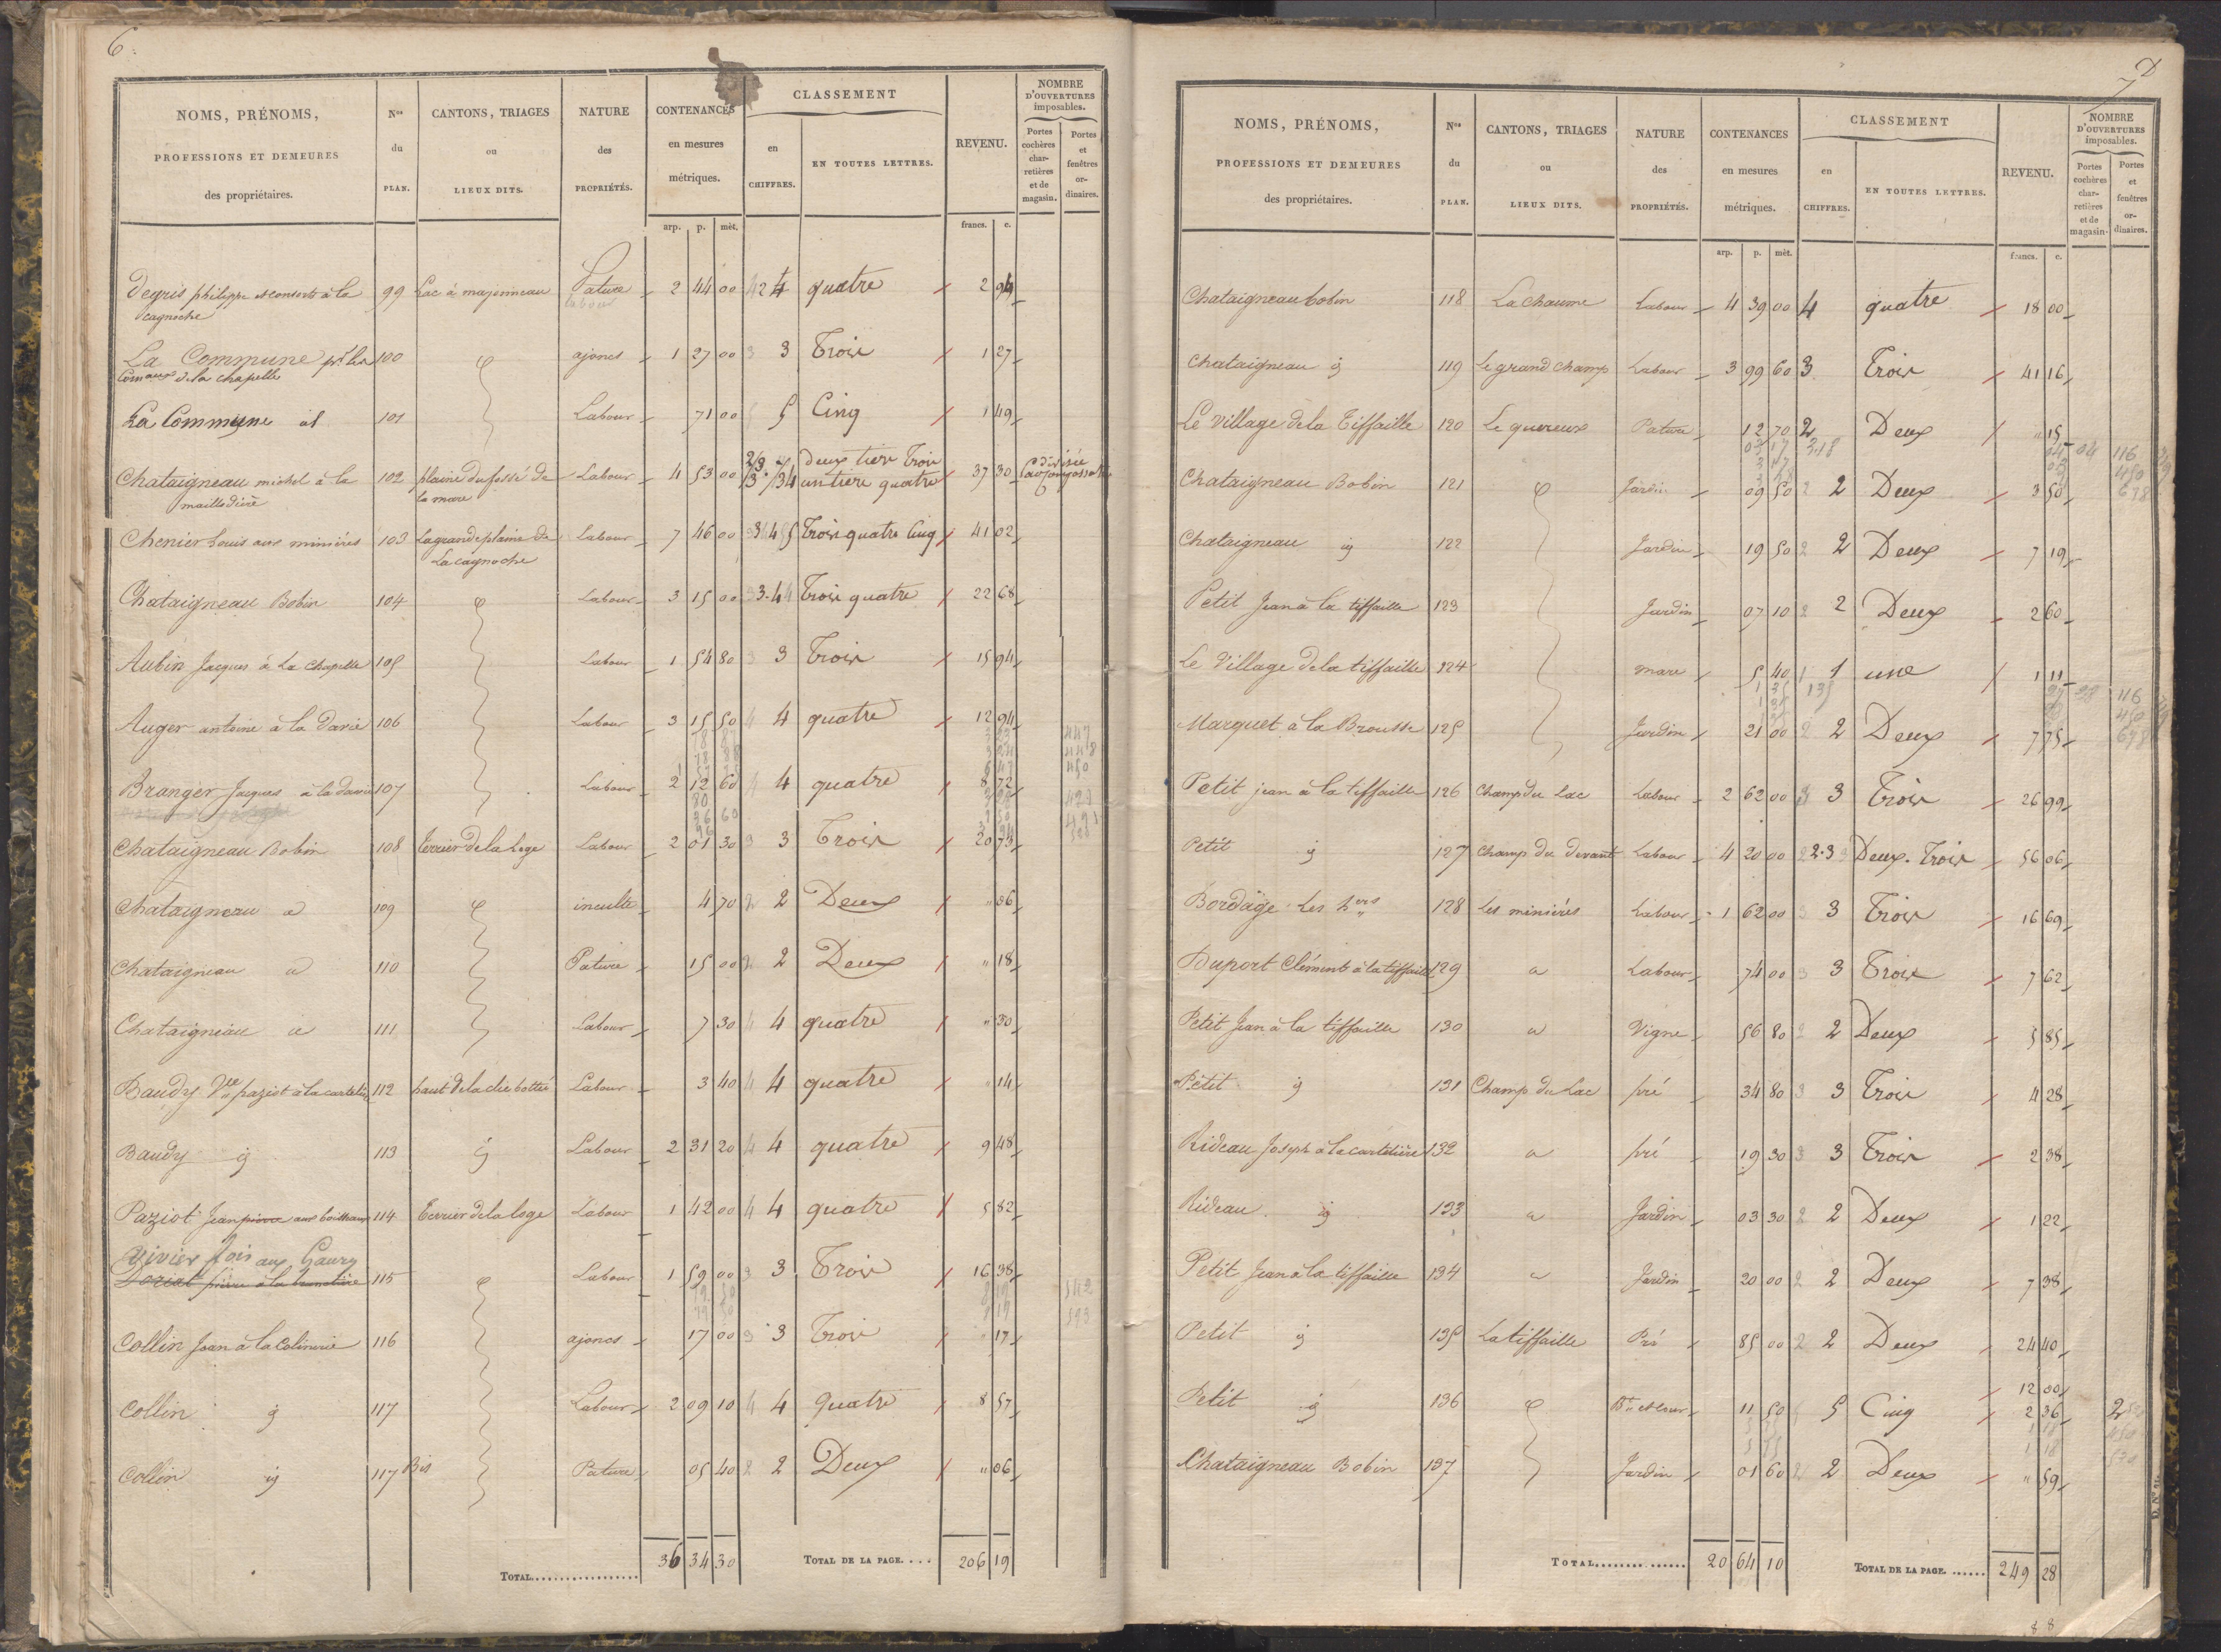 6.
NOMS, PRÉNOMS, PROFESSIONS ET DEMEURES des propriétaires. Nos du PLAN. CANTONS, TRIAGES ou LIEUX DITS. NATURE des PROPRIÉTÉS. CONTENANCES en mesures métriques. CLASSEMENT en CHIFFRES. EN TOUTES LETTRES. REVENU. NOMBRE D'OUVERTURES imposables. Portes cochères charretières et de magasin. Portes et fenêtres ordinaires.
arp. p. mèt. francs. c.
Degris philippe et consorts à la cagnoche 99 Lac à majonneau Pature 2 44 00 4 quatre 2 94
La Commune pr les Comaux de la chapelle 100 ajoncs 1 27 00 3 3 Trois 1 27
La Commune id 101 Labour 71 00 5 5 Cinq 1 49
Chataigneau michel à la 102 plaine du fossé de la mare Labour 4 53 00 2/3 3 1/3 4 deux tiers Trois un tiers quatre 37 30
Chenier Louis aux minières 103 La grande plaine de La cagnoche Labour 7 46 00 3 4 5 Trois quatre Cinq 41 02
Chataigneau Bobin 104 Labour 3 15 00 3.4 Trois quatre 22 68
Aubin Jacques à La Chapelle 105 Labour 1 54 80 3 3 Trois 15 94
Auger antoine à la Davie 106 Labour 3 15 50 4 4 quatre 12 94
447
448
450
Branger Jacques à la davie 107 Labour 2 12 60 4 4 quatre 8 72
Chataigneau Bobin 108 Terrier de la Loge Labour 2 01 30 3 3 Trois 20 73
Chataigneau id 109 inculte 4 70 2 2 Deux " 06
Chataigneau id 110 Pature 15 00 2 2 Deux " 18
Chataigneau id 111 Labour 7 30 4 4 quatre " 30
Baudy Vve paziot à la cartelière 112 Labour 3 40 4 4 quatre " 14
Baudy ig 113 ig Labour 2 31 20 4 4 quatre 9 48
Paziot Jean pierre aux boisseaux 114 Terrier de la loge Labour 1 42 00 4 4 quatre 5 82
Vivier fois aux Gaury
115 Labour 1 59 00 3 3 Trois 16 38
Collin Jean à la Colinerie 116 ajoncs 17 00 3 3 Trois " 17
Collin ig 117 Labour 2 09 10 4 4 Quatre 8 57
Collin ig 117 Bis Pature 05 40 2 2 Deux " 06
TOTAL 36 34 30 TOTAL DE LA PAGE.... 206 19
7
NOMS, PRÉNOMS, PROFESSIONS ET DEMEURES des propriétaires. Nos du PLAN. CANTONS, TRIAGES ou LIEUX DITS. NATURE des PROPRIÉTÉS. CONTENANCES en mesures métriques. CLASSEMENT en CHIFFRES. EN TOUTES LETTRES. REVENU. NOMBRE D'OUVERTURES imposables. Portes cochères charretières et de magasin. Portes et fenêtres ordinaires.
arp. p. mèt. francs. c.
Chataigneau bobin 118 La Chaume Labour 4 39 00 4 quatre 18 00
Chataigneau ig 119 Le grand Champ Labour 3 99 60 3 Trois 41 16
Le Village de la Tiffaille 120 Le quereux Pature 12 70 2 Deux " 15
Chataigneau Bobin 121 Jardin 09 50 2 2 Deux 3 50
Chataigneau ig 122 Jardin 19 50 2 2 Deux 7 19
Petit Jean à la tiffaille 123 Jardin 07 10 2 2 Deux 2 60
Le Village de la tiffaille 124 mare 5 40 1 1 une 1 11
Marquet à la Brousse 125 Jardin 21 00 2 2 Deux 7 75
Petit jean à la tiffaille 126 Champ du Lac Labour 2 62 00 3 3 Trois 26 99
Petit ig 127 Champ du devant Labour 4 20 00 2.3 Deux. Trois 56 06
Bordage Les hers 128 Les minières Labour 1 62 00 3 3 Trois 16 69
Duport Clément à la tiffaille 129 Labour 74 00 3 3 Trois 7 62
Petit Jean à la tiffaille 130 Vigne 56 80 2 2 Deux 5 85
Petit ig 131 Champ du Lac pré 34 80 3 3 Trois 4 28
Rideau Joseph à la cartelière 132 pré 19 30 3 3 Trois 2 38
Rideau ig 133 Jardin 03 30 2 2 Deux 1 22
Petit Jean à la tiffaille 134 Jardin 20 00 2 2 Deux 7 38
Petit ig 135 La tiffaille Pré 85 00 2 2 Deux 24 40
12 00
Petit ig 136 Bt et Cour 11 50 5 5 Cinq 2 36 2
Chataigneau Bobin 137 Jardin 01 60 2 2 Deux " 59
TOTAL 20 64 10 TOTAL DE LA PAGE. 249 28